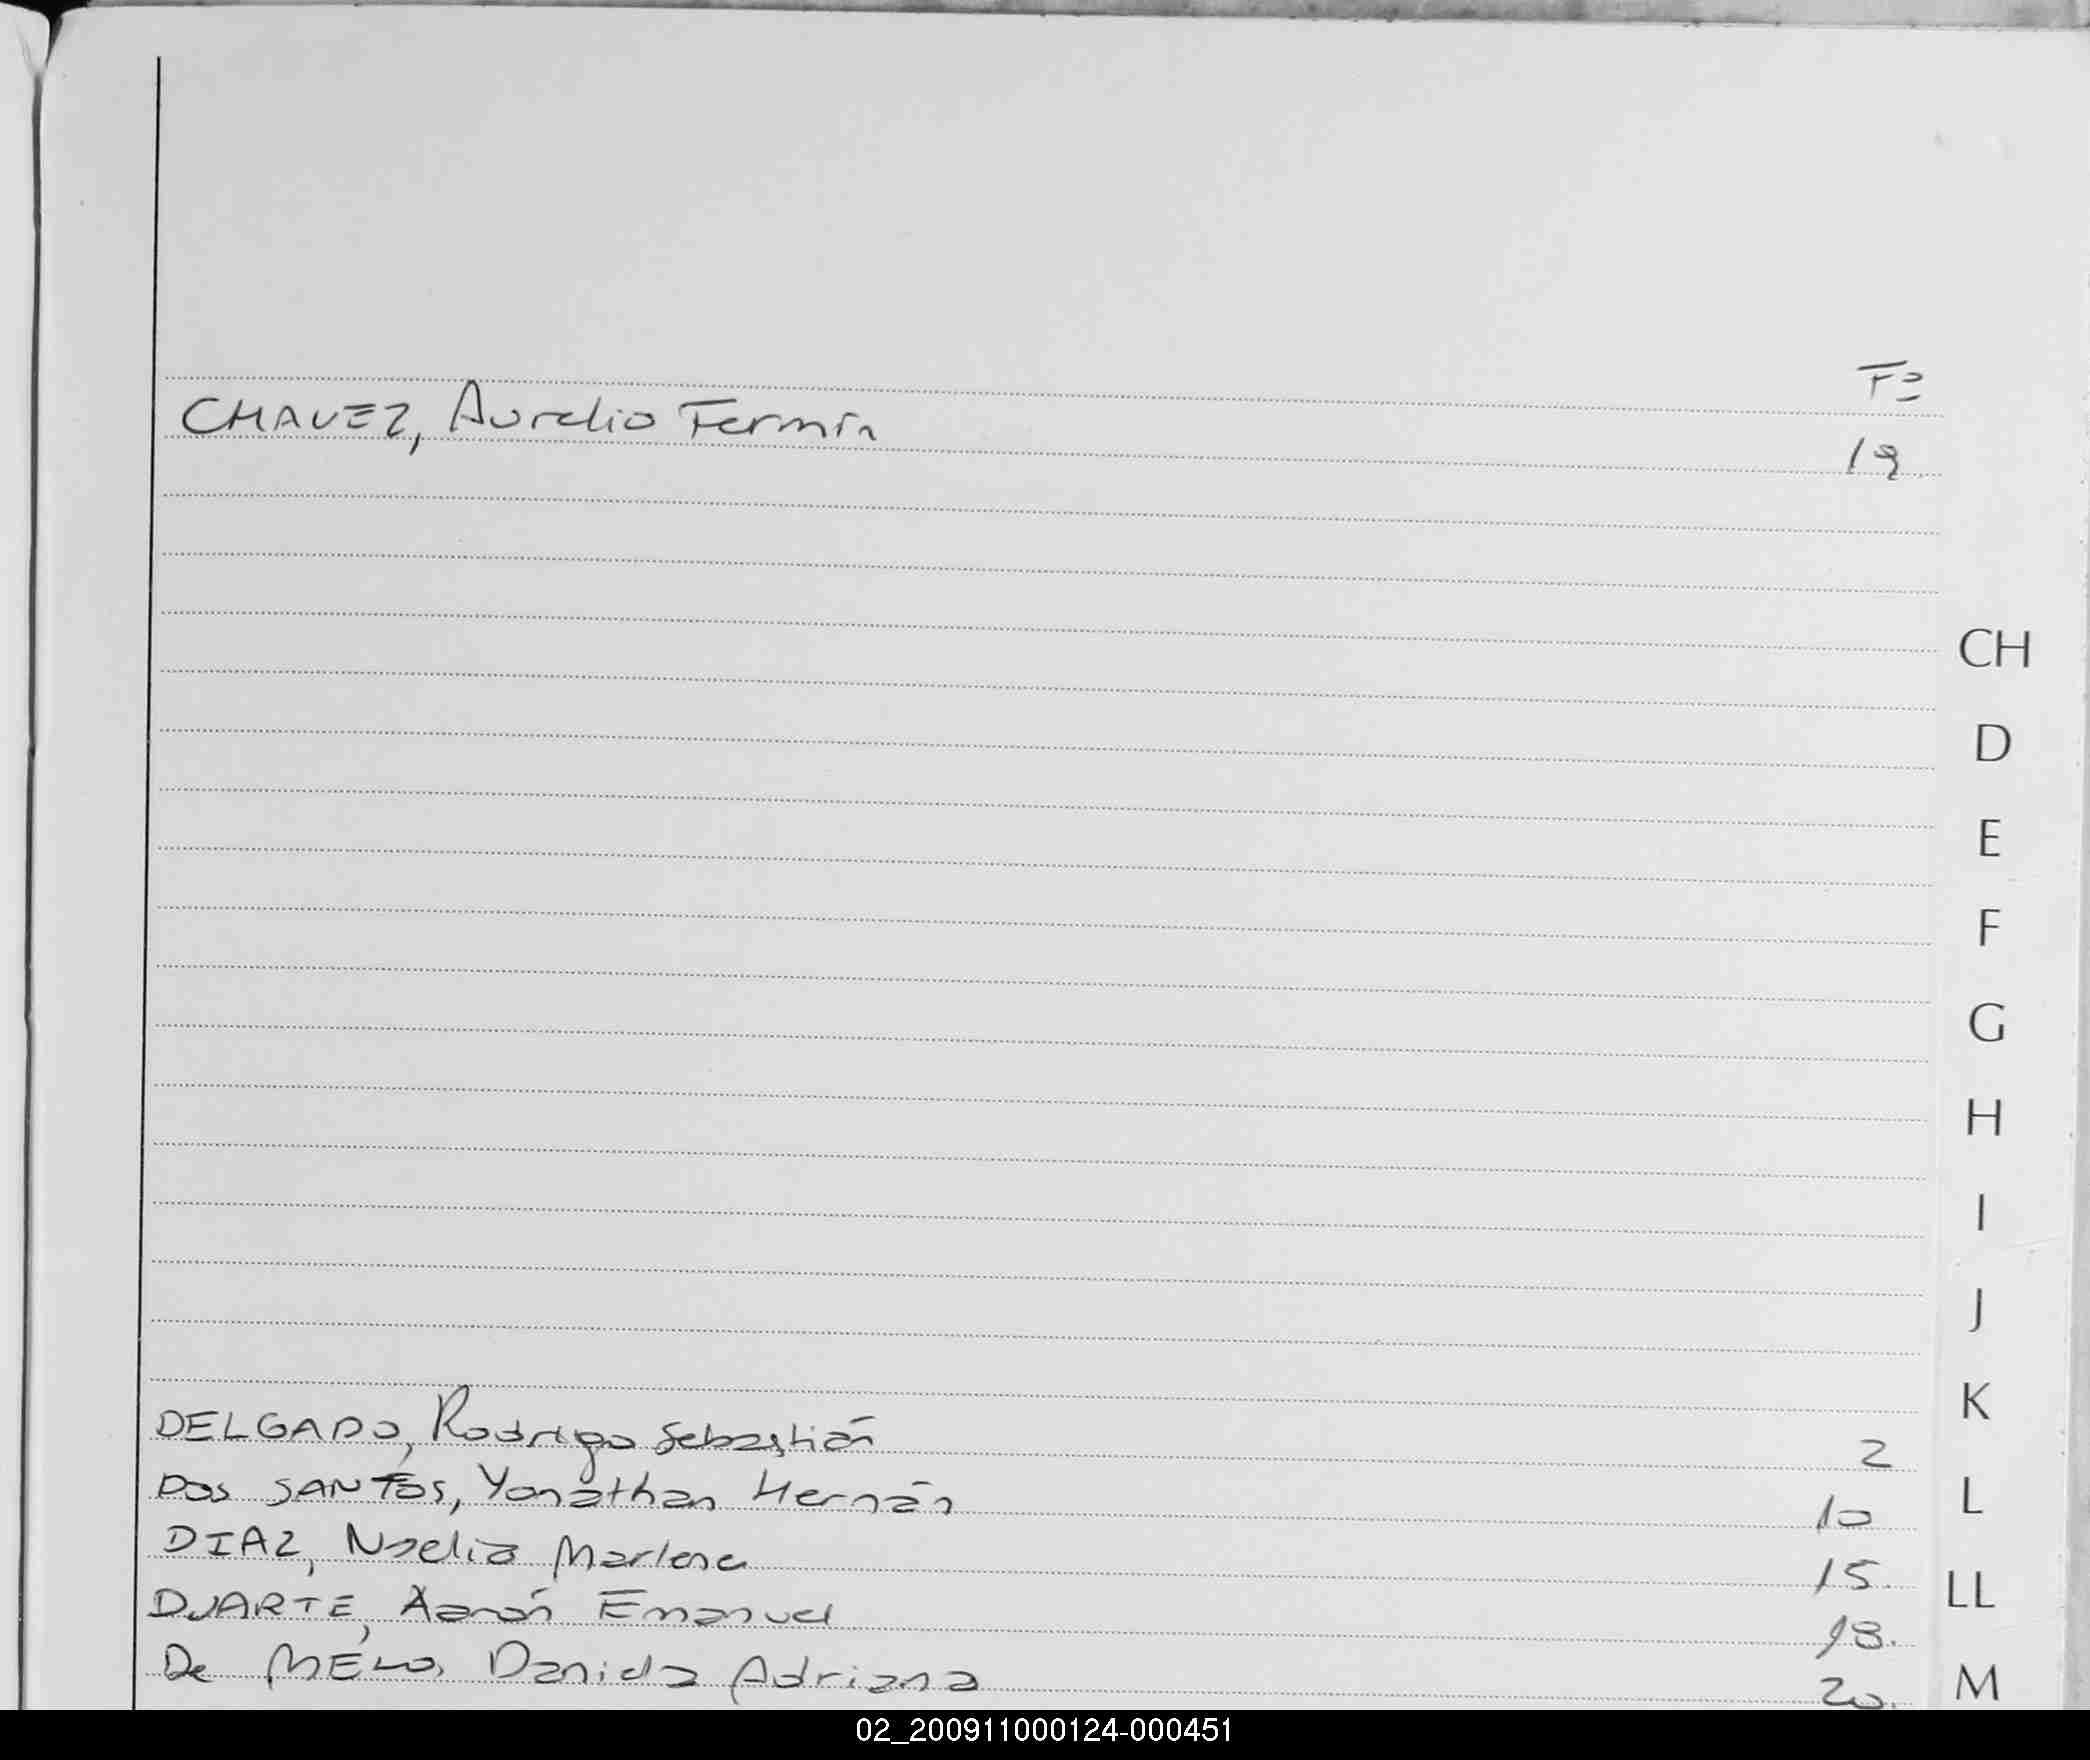 Fº
CHAVEZ, Aurelio Fermín 19
CH
D
E
F
G
H
I
J
K
DELGADO, Rodrigo Sebastián 2
L
Dos SANTOS, Yonathan Hernán 10
DIAZ, Noelia Marlene 15
LL
DUARTE, Aarón Emanuel 18.
De MELO, Daniela Adriana 20.
M
02_200911000124-000451